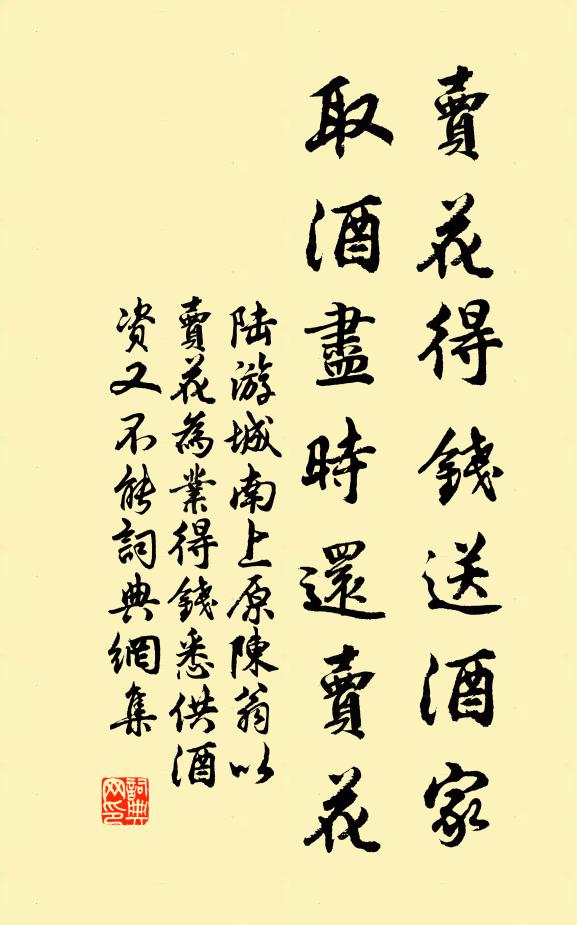 賣花得錢送酒家
取酒盡時還賣花
陆游城南上原陳翁以
賣花為業得錢悉供酒
资又不能詞典網集
詞典
网印